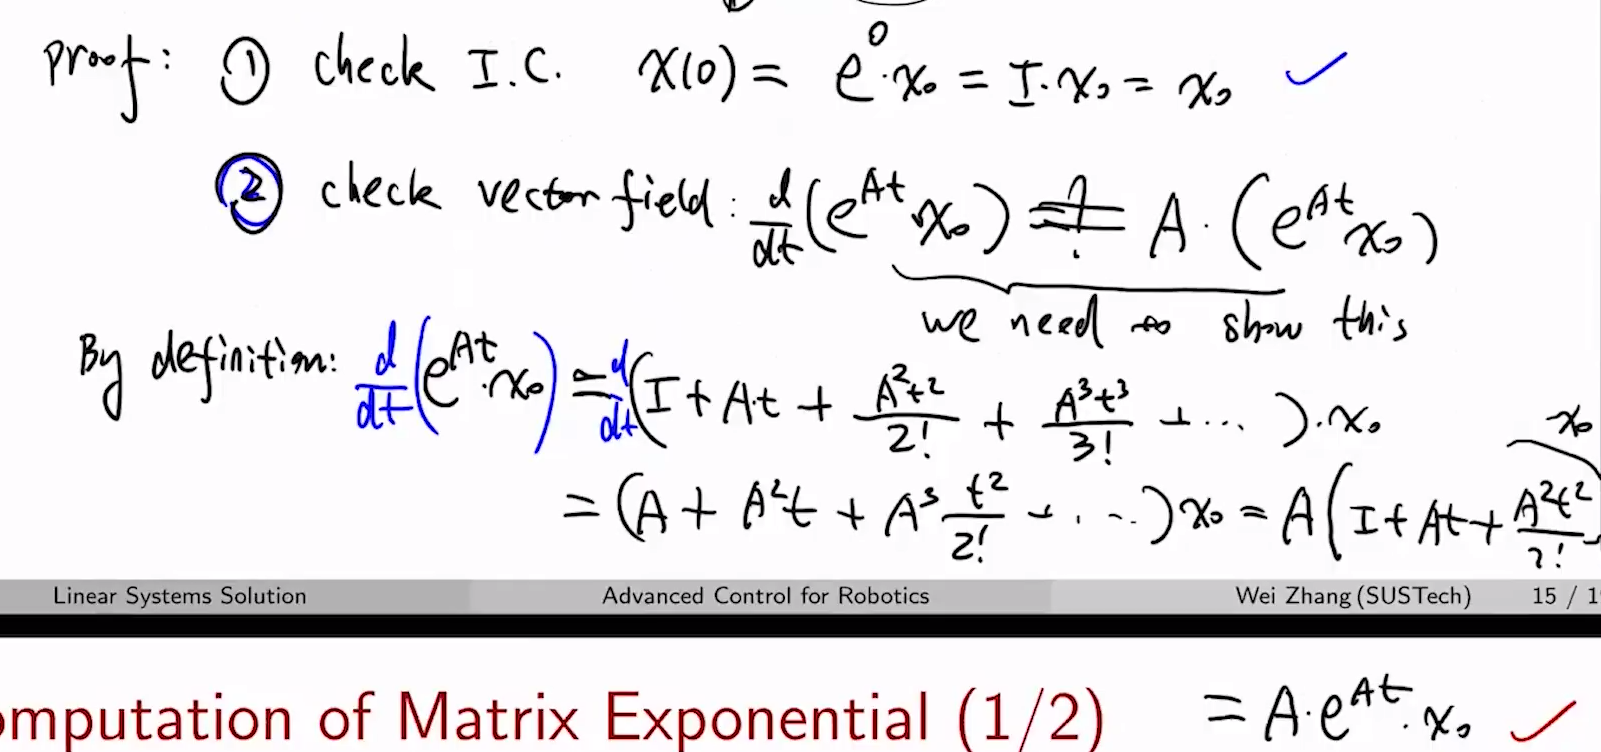 Proof: ① check I.C. x(0) = e⁰·x₀ = I·x₀ = x₀ ✓
② check vector field: d/dt (e^{At} x₀) =? A·(e^{At} x₀)
we need to show this
By definition: d/dt (e^{At}·x₀) = d/dt (I + A·t + A²t²/2! + A³t³/3! + ... )·x₀
x₀
= (A + A²t + A³ t²/2! + ... ) x₀ = A (I + At + A²t²/2!
Linear Systems Solution Advanced Control for Robotics Wei Zhang (SUSTech) 15 / 1
omputation of Matrix Exponential (1/2) = A·e^{At}·x₀ ✓